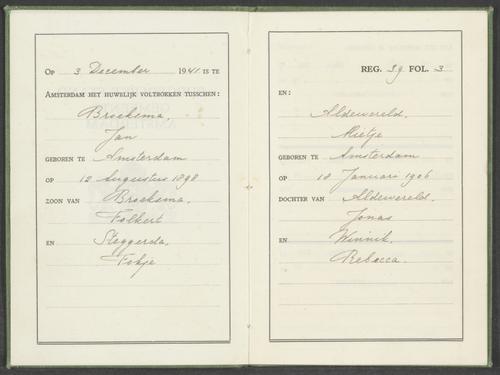 OP 3 December 1941 IS TE
AMSTERDAM HET HUWELIJK VOLTROKKEN TUSSCHEN:
Broeksma,
Jan
GEBOREN TE Amsterdam
OP 12 Augustus 1898
ZOON VAN Broeksma,
Folkert
EN Steggerda,
Fokje
REG. 39 FOL. 3
EN:
Aldewereld,
Mietje
GEBOREN TE Amsterdam
OP 18 Januari 1906
DOCHTER VAN Aldewereld,
Jonas
EN Winnik,
Rebecca.